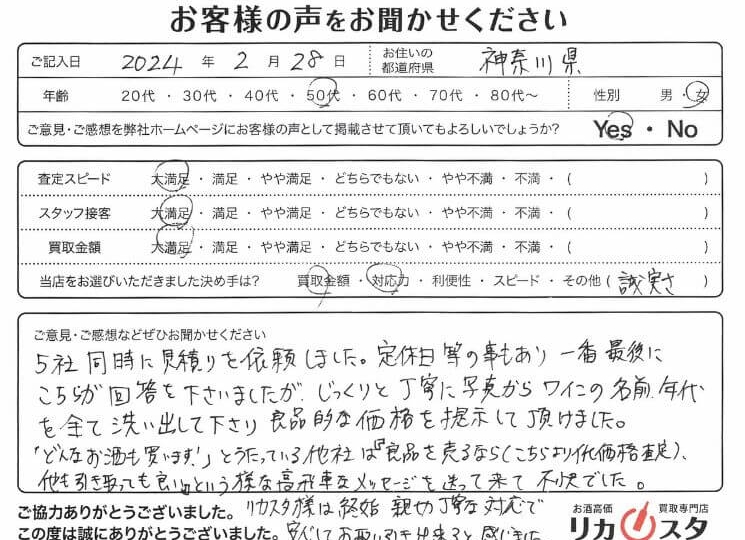 お客様の声をお聞かせください
ご記入日 2024 年 2 月 28 日 お住いの都道府県 神奈川県
年齢 20代 ・ 30代 ・ 40代 ・ 50代 ・ 60代 ・ 70代 ・ 80代〜 性別 男 ・ 女
ご意見・ご感想を弊社ホームページにお客様の声として掲載させて頂いてもよろしいでしょうか? Yes ・ No
査定スピード 大満足 ・ 満足 ・ やや満足 ・ どちらでもない ・ やや不満 ・ 不満 ・ ( )
スタッフ接客 大満足 ・ 満足 ・ やや満足 ・ どちらでもない ・ やや不満 ・ 不満 ・ ( )
買取金額 大満足 ・ 満足 ・ やや満足 ・ どちらでもない ・ やや不満 ・ 不満 ・ ( )
当店をお選びいただきました決め手は? 買取金額 ・ 対応力 ・ 利便性 ・ スピード ・ その他 ( 誠実さ )
ご意見・ご感想などぜひお聞かせください
5社同時に見積りを依頼しました。定休日等の事もあり一番最後に
こちらが回答を下さいましたが、じっくりと丁寧に写真からワインの名前、年代
を全て洗い出して下さり良品的な価格を提示して頂けました。
「どんなお酒も買います!」とうたっている他社は「良品を売るなら(こちらより低価格査定)、
他も引き取っても良い」という様な高飛車なメッセージを送って来て不快でした。
リカスタ様は終始親切丁寧な対応で
安心してお取り引き出来ると感じました
ご協力ありがとうございました。
この度は誠にありがとうございました。
お酒高価 買取専門店
リカスタ